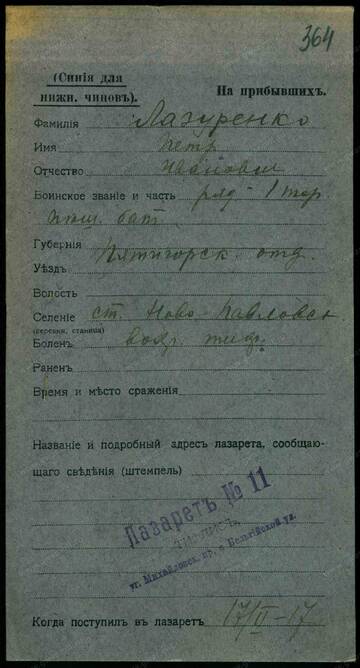 364
(Синія для
нижн. чиновъ).
На прибывшихъ.
Фамилія Лазуренко
Имя Петр
Отчество Иванович
Воинское званіе и часть ряд - 1 тер
пеш. бат.
Губернія
Уѣздъ Пятигорск. отд.
Волость
Селеніе ст. Ново-Павловск
(деревня, станица)
Боленъ
Раненъ
Время и мѣсто сраженія
Названіе и подробный адресъ лазарета, сообщаю-
щаго свѣдѣнія (штемпель)
Лазаретъ № 11
ТИФЛИСЪ,
уг. Михайловск. пр. и Бельгійской ул.
Когда поступилъ въ лазаретъ 17/II-17